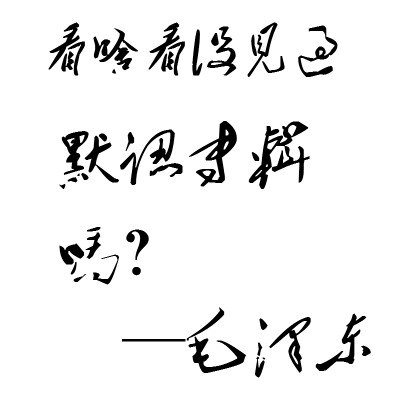 看啥看没见过
默认专辑
吗?
——毛泽东